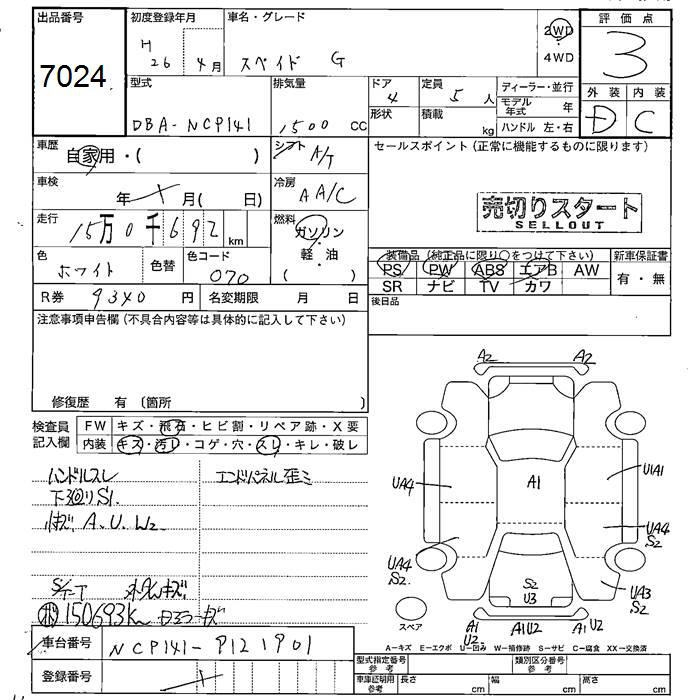 出品番号
7024
初度登録年月
H 26 4月
車名・グレード
スペイド G
2WD
4WD
評価点
3
外装 内装
D C
型式
DBA-NCP141
排気量
1500 CC
ドア
4
形状
定員
5人
積載
kg
ディーラー・並行
モデル年式 年
ハンドル 左・右
車歴
自家用・( )
シフト
A/T
車検
年 月( 日)
冷房
AA/C
走行
15万0千692 km
燃料
ガソリン
軽・油
( )
色
ホワイト
色替
色コード
070
R券 9340 円
名変期限 月 日
セールスポイント (正常に機能するものに限ります)
売切りスタート
SELLOUT
装備品 (純正品に限り○をつけて下さい)
PS PW ABS エアB AW
SR ナビ TV カワ
新車保証書
有・無
後日品
注意事項申告欄 (不具合内容等は具体的に記入して下さい)
修復歴 有 (箇所 )
検査員記入欄
FW キズ・飛石・ヒビ割・リペア跡・X要
内装 キズ・汚レ・コゲ・穴・スレ・キレ・破レ
ハンドルスレ
エンドパネル歪ミ
下廻りS1
内キズ A.U.W2
150693Km
車台番号
NCP141-9121901
登録番号
A2 A2
A1
UA4
U1A1
UA4 S2
UA4 S2
S2 U3
UA3 S2
スペア
A1 U2
A1U2
A1 U2
A-キズ E-エクボ U-凹み W-補修跡 S-サビ C-腐食 XX-交換済
型式指定番号 参考
類別区分番号 参考
車庫証明用 参考
長さ cm
幅 cm
高さ cm